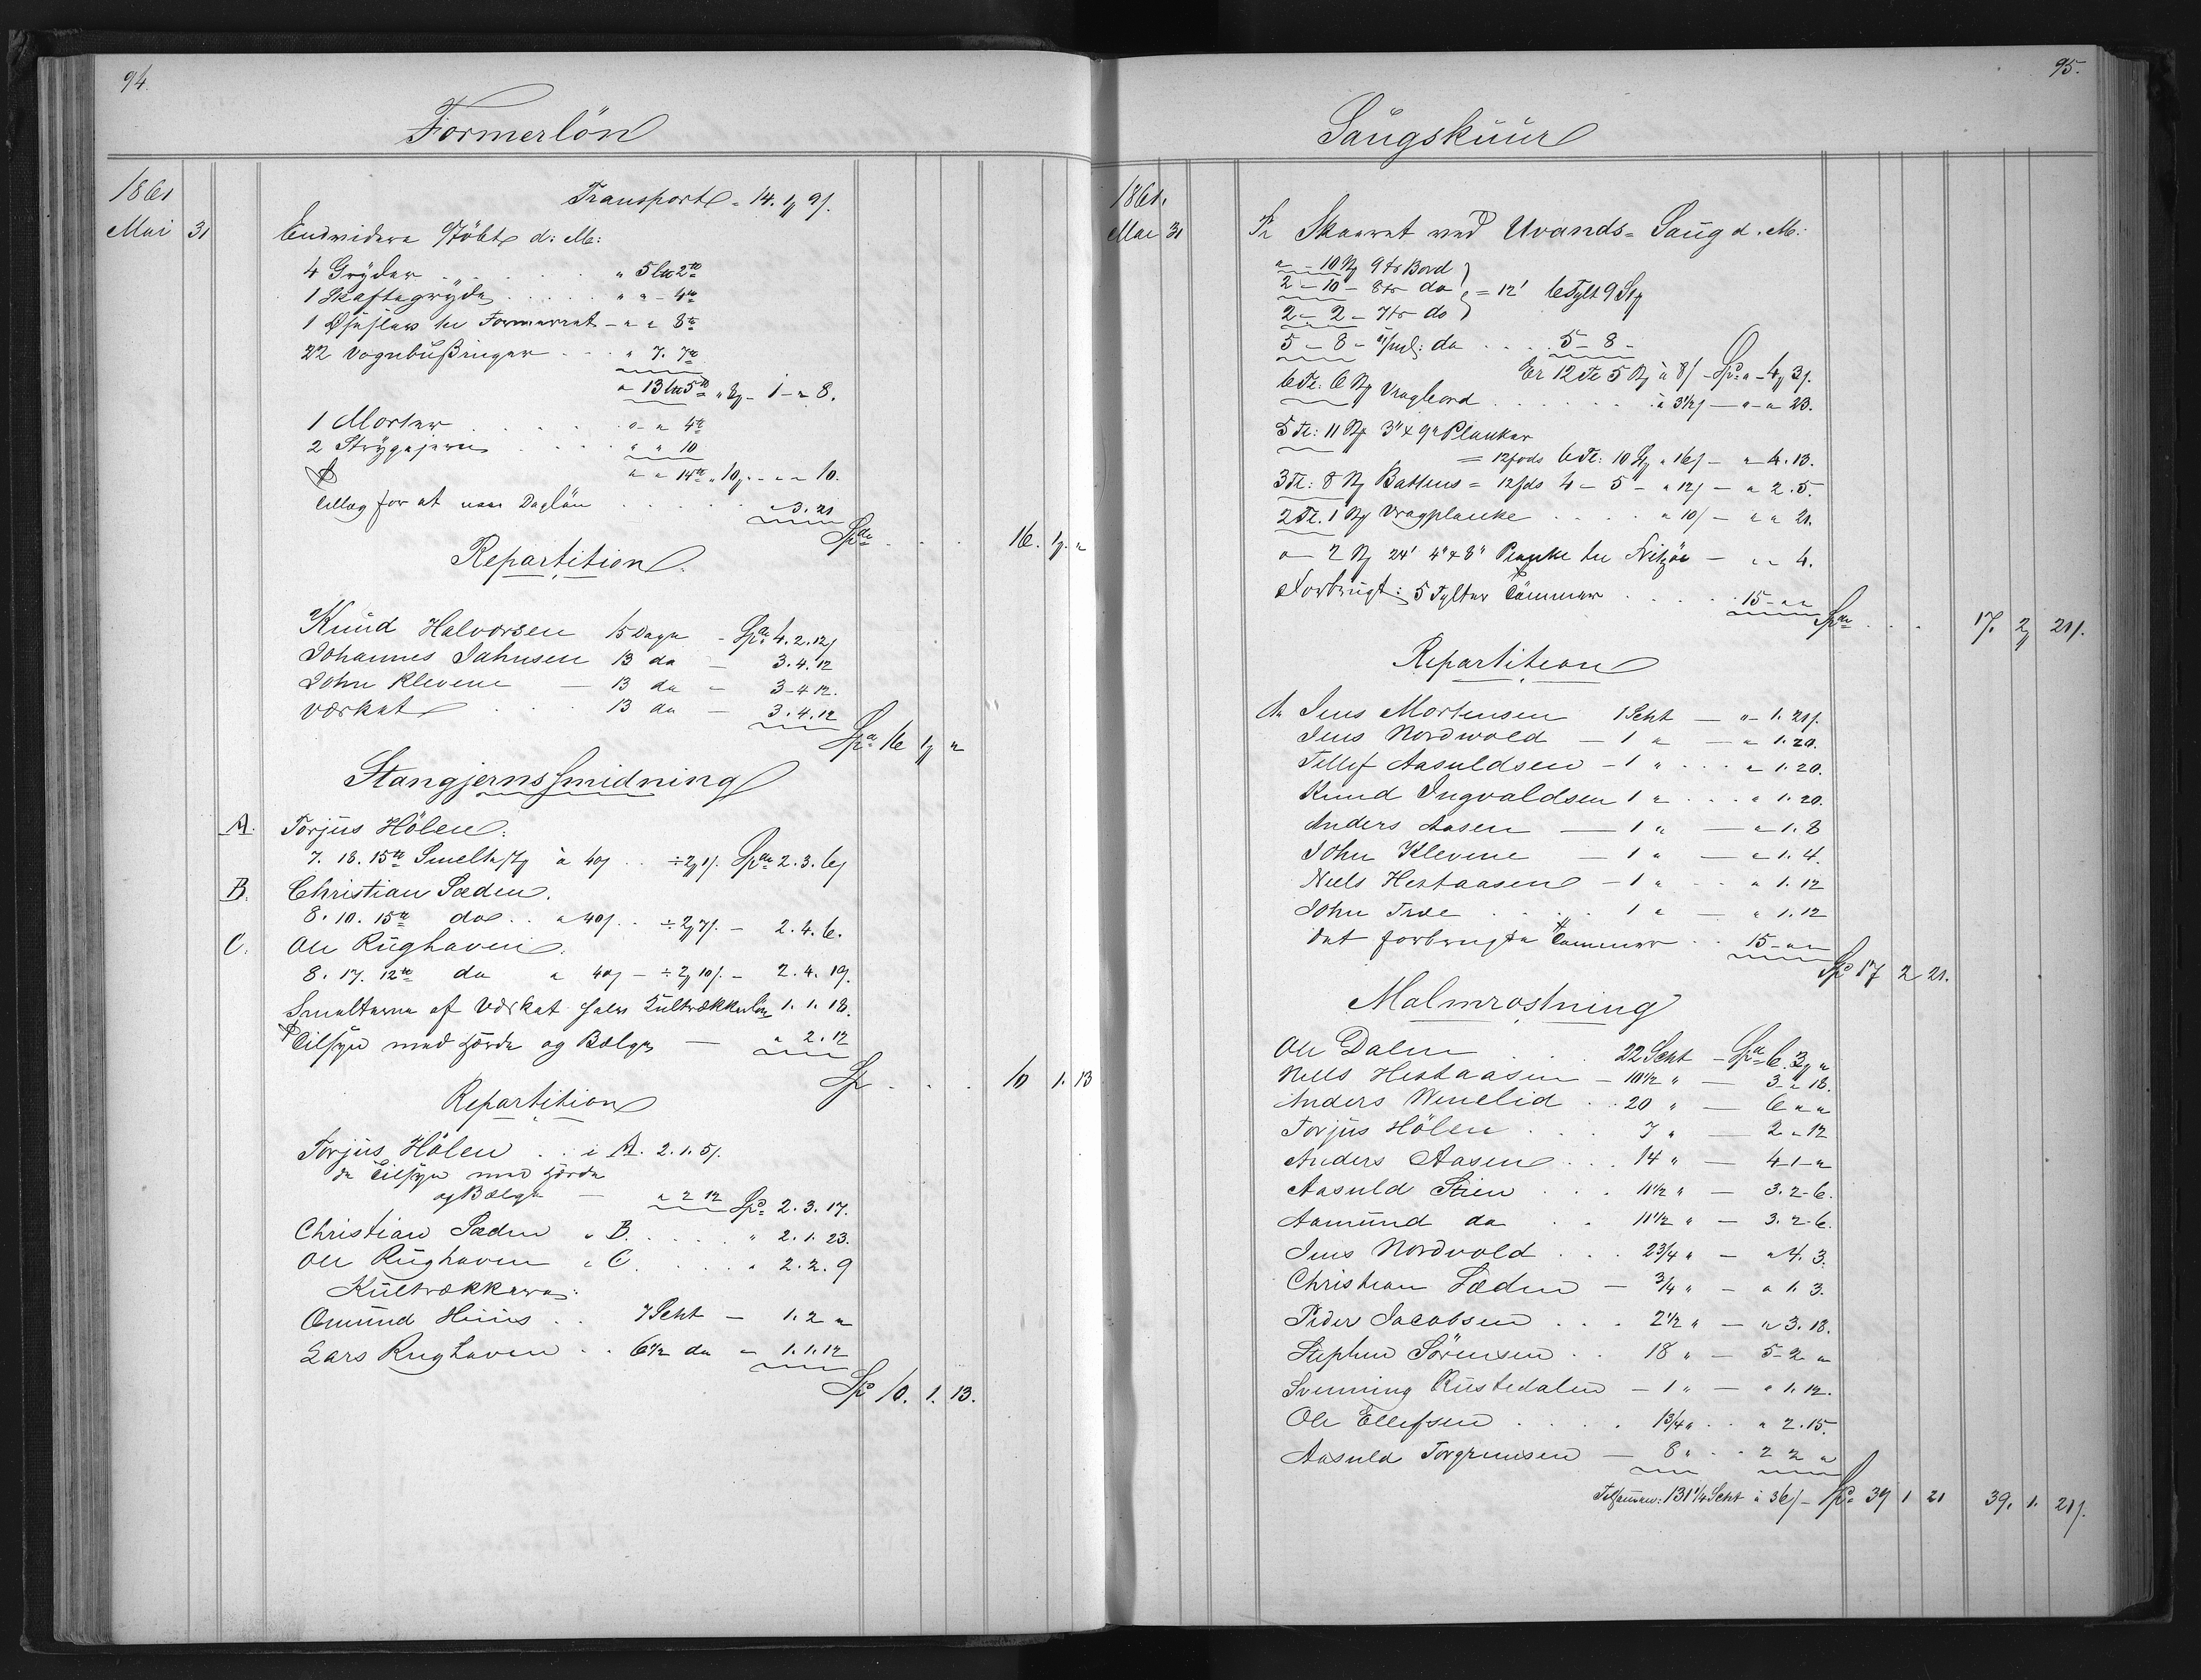 94.
Formerlön
1861
Transport - 14. 1 9/.
Mai 31 Endvidere Støbt d: M:
4 Gryder . . . . " 5 2
1 Skaftegryde . . . . " " - 4
1 til Formerret - " " 8
22 Vognbüßinger . . . " 7. 7
" 13 5 " 8 - 1 - " 8.
1 Morter . . . . " - " 4
2 Strygejern . . . . " " 10
" " 14 " 10 - " " 10.
Tillæg for at Dagløn . . . . . " 3. 21
Spd . . . 16. 1. "
Repartition
Knüd Halvorsen 15 Dage - Spd 4. 2. 12/
Johannes Jahnsen 13 do - 3. 4. 12
John Klevene - 13 do - 3 - 4 12.
Værket . . . 13 do - 3. 4. 12
Spd 16 1 "
Stangjernssmidning
A. Torjüs Hölen:
7. 18. 15 Smeltest à 40/ . . ÷ 2 1/. Spd 2. 3. 6/
B. Christian Sæden.
8. 10. 15 do . . a 40/ . . ÷ 2 7/. - 2. 4. 6.
C. Ole Rüghaven.
8. 17. 12 do a 40/ - ÷ 2 10/. - 2. 4. 19.
Smelterne af Værket halv Kultrækkerløn 1. 1. 18.
Tilsyn med Hærde og Bælge - " 2. 12
Sp . . . 10 1. 13
Repartition
Torjüs Hölen . . i A. 2. 1. 5/.
do Tilsyn med Hærde
og Bælge - " 2 12 Spd 2. 3. 17.
Christian Sæden " B. . . . . " 2. 1. 23.
Ole Rüghaven " C . . . . " 2. 2. 9
Kültrækkere:
Omünd Hüüs . . 7 Scht - 1. 2 "
Lars Rüghaven . . 6 1/2 do - 1. 1. 12
Spd 10. 1. 13.
95.
Saügsküür
1861.
Mai 31 Skaaret ved Uvands-Saüg d. M:
" - 10 9 Bord
2 - 10 - 8 do = 12' 6 Tylt 9 St
2 - 2 - 7 do
5 - 8 - do . . . . 5 - 8 -
Er 12 T 5 à 8/ - Spd " - 4 3/.
6 T: 6 Vragbord . . . . . . à 3 1/2/ - " - " 23.
5 T: 11 3" x 9" Planker
= 12 fods 6 T: 10 St " 16/ - " - 4. 13.
3 T: 8 Battens = 12 fds 4 - 5 - " 12/ - " 2. 5.
2 T. 1 Vragplanke . . . . " 10/ - " " 21.
" - 2 24' 4" x 8" Planke til - " " 4.
Forbrügt: 5 Tylter Tömmer . . . . 15 - " "
Spd . . . 17. 2 21/.
Repartition
Jens Mortensen 1 Scht - " - 1. 21/.
Jens Nordvold - 1 " - " 1. 20.
Tellef Aasuldsen - 1 " . . . " 1. 20.
Knud Ingvaldsen 1 " . . . " 1. 20.
Anders Aasen - 1 " - " 1. 8
John Klevene - 1 " - " 1. 4.
Niels Hestaasen - 1 " . . " 1. 12
John Træe . . . . 1 " - " 1. 12
det forbrugte Tömmer . . 15 - " "
Spd 17 2 21.
Malmrostning
Ole Dalen . . . 22 Scht - Spd 6. 3 "
Niels Hestaasen - 10 1/2 " - 3 - " 18.
Anders Wenelid . . 20 " - 6 " "
Torjüs Hölen . . . 7 " - 2 " 12
Anders Aasen . . . 14 " - 4 - 1 - "
Aasuld Stien . . . 11 1/2 " - 3. 2 - 6.
Aamünd do . . 11 1/2 " - 3. 2 - 6.
Jens Nordvold . . . 2 3/4 " - " 4. 3.
Christian Sæden - 3/4 " - " 1. 3.
Peder Jacobsen . . . 2 1/2 " - " 3. 18.
Stephen Sörensen . . 18 " - 5 - 2 "
Svenning Rüstedalen - 1 " - " 1. 12.
Ole Ellefsen . . . . . 1 3/4 " . . " 2. 15.
Aasuld Torgrimsen - 8 " . . . 2 2 "
Tilsammen: 131 1/4 Scht à 36/ - Spd 39 1 21 39. 1. 21/.